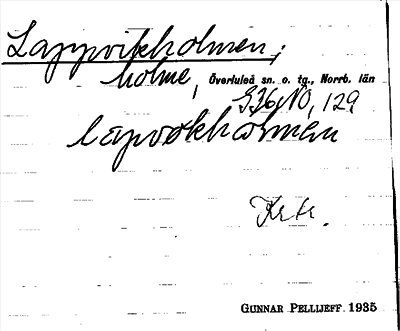 Lappvikholmen;
holme, Överluleå sn. o. tg., Norrb. län
G36NO, 129
lapvikholmen
GUNNAR PELLIJEFF 1935